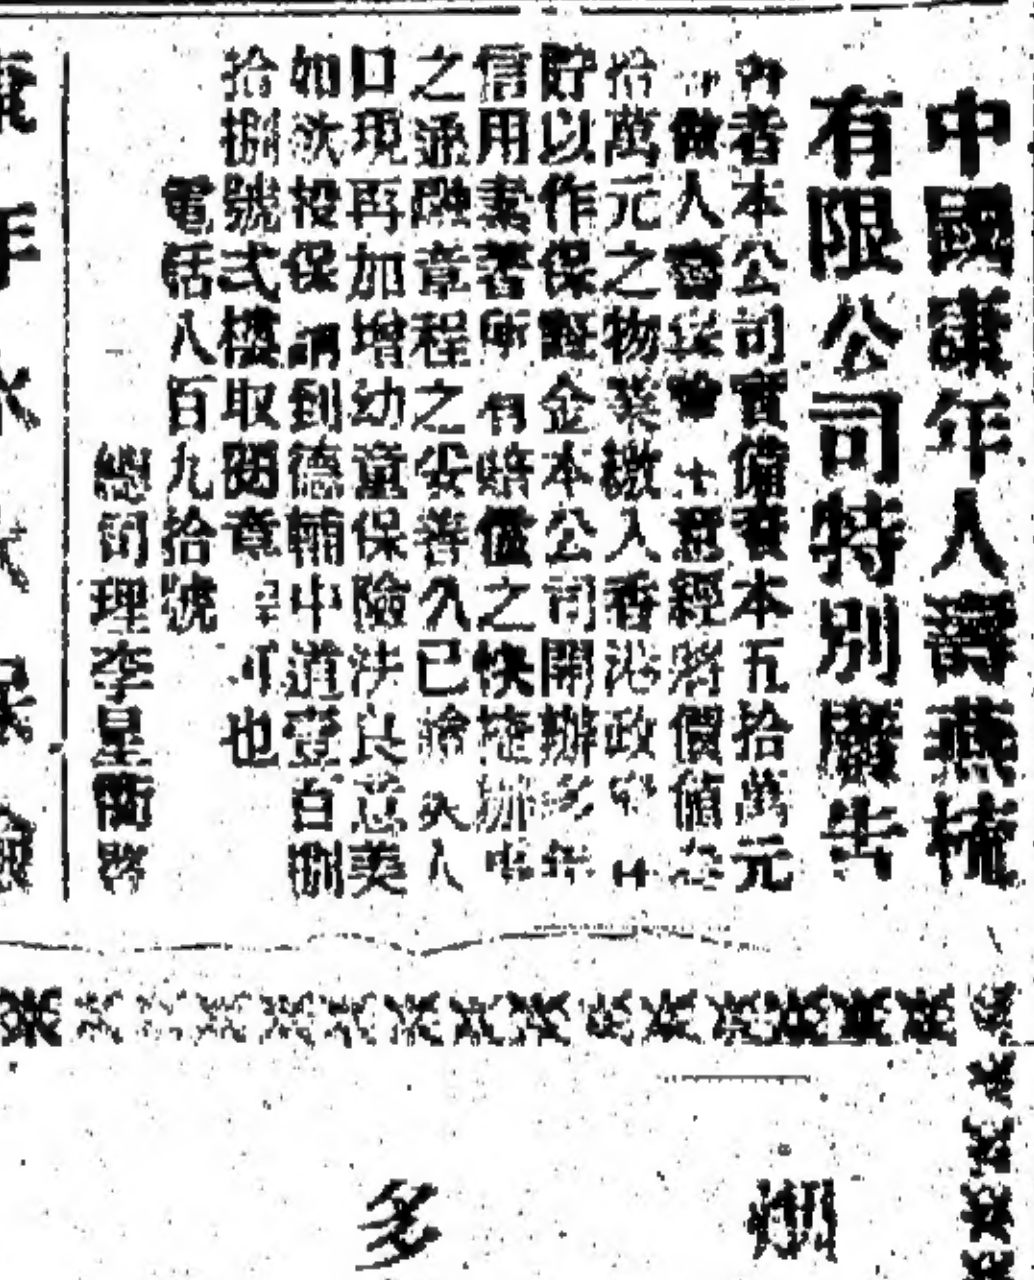 中國康年人壽燕梳
有限公司特別廣告
者本公司實備資本五拾萬元
做人壽意經將價值
拾萬元之物業繳入香港政
貯以作保證金本公司開辦多年
信用素著所有賠償之快捷辦
之通融章程之妥善久已膾炙人
口現再加增幼童保險法良意美
如欲投保請到德輔中道壹百捌
拾捌號弍樓取閱章程可也
電話八百九拾號
總司理李星衢啓
多